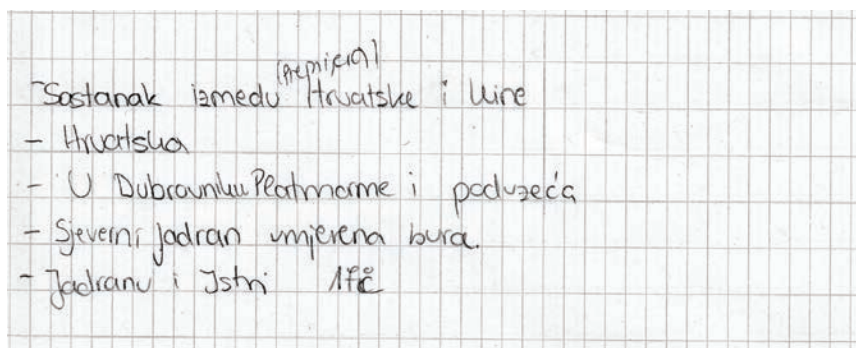 (premijera)
- Sastanak između Hrvatske i Kine
- Hrvatska
- U Dubrovniku Platmarme i poduzeća
- Sjeverni Jadran umjerena bura.
- Jadranu i Istri 17°C